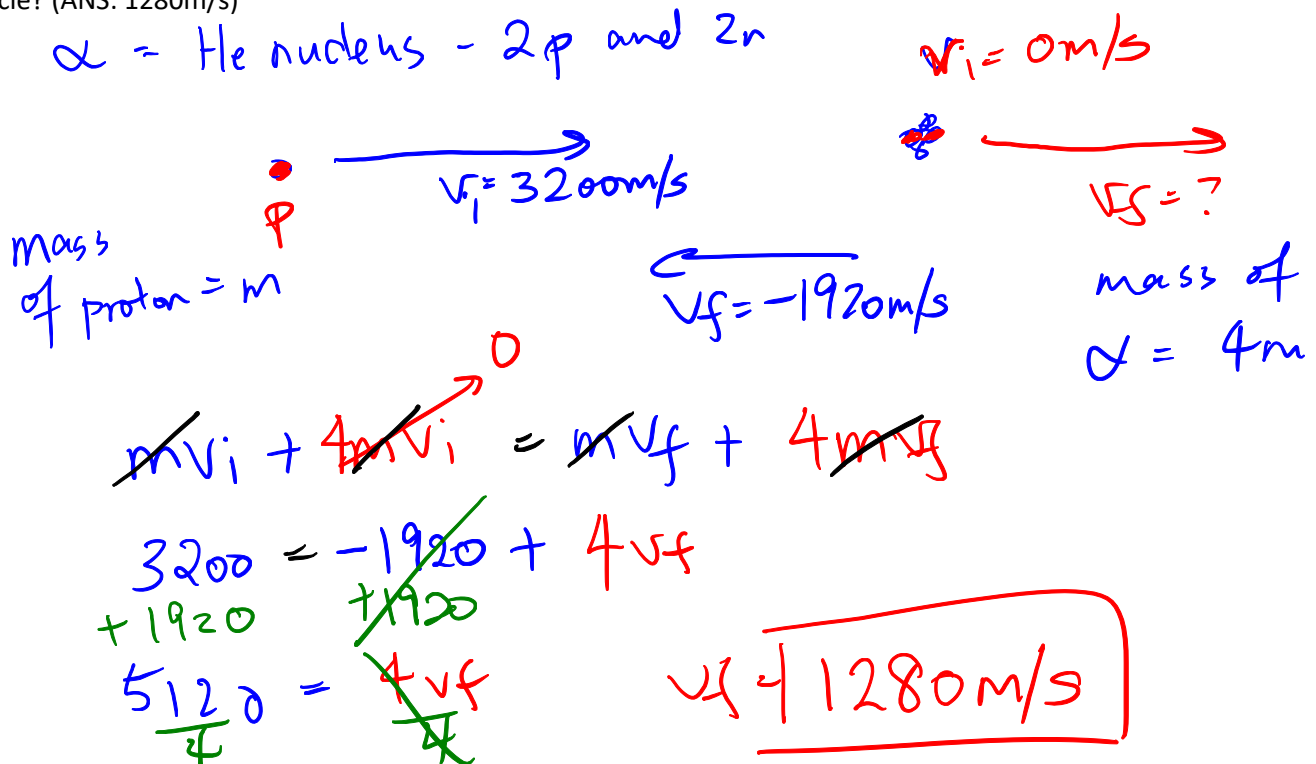 cle? (ANS: 1280m/s)
α = He nucleus - 2p and 2n
vi = 0m/s
vi = 3200m/s
vf = ?
p
mass
of proton = m
vf = -1920m/s
mass of
α = 4m
0
mvi + 4mvi = mvf + 4mvf
3200 = -1920 + 4vf
+1920 +1920
5120 = 4vf
4 4
vf = 1280m/s